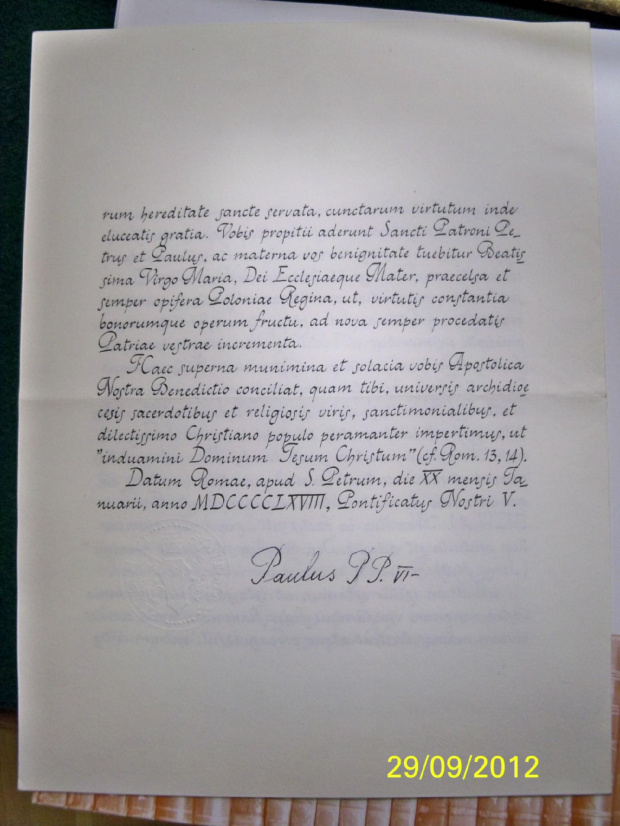 rum hereditate sancte servata, cunctarum virtutum inde
eluceatis gratia. Vobis propitii aderunt Sancti Patroni Pe_
trus et Paulus, ac materna vos benignitate tuebitur Beatis
sima Virgo Maria, Dei Ecclesiaeque Mater, praecelsa et
semper opifera Poloniae Regina, ut, virtutis constantia
bonorumque operum fructu, ad nova semper procedatis
Patriae vestrae incrementa.
Haec superna munimina et solacia vobis Apostolica
Nostra Benedictio conciliat, quam tibi, universis archidioe
cesis sacerdotibus et religiosis viris, sanctimonialibus, et
dilectissimo Christiano populo peramanter impertimus, ut
"induamini Dominum Iesum Christum" (cf. Rom. 13, 14).
Datum Romae, apud S. Petrum, die XX mensis Ia_
nuarii, anno MDCCCCLXVIII, Pontificatus Nostri V.
Paulus PP. VI-
29/09/2012